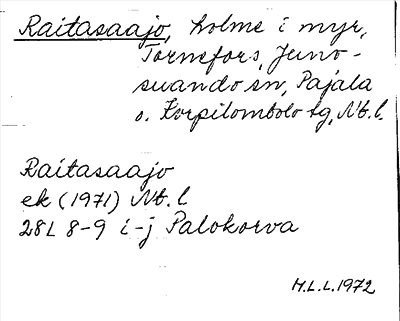 Raitasaajo, holme i myr,
Tornefors, Juno-
suando sn, Pajala
o. Korpilombolo tg, Nb. l.
Raitasaajo
ek (1971) Nb. l
28L 8-9 i-j Palokorva
H.L.L. 1972